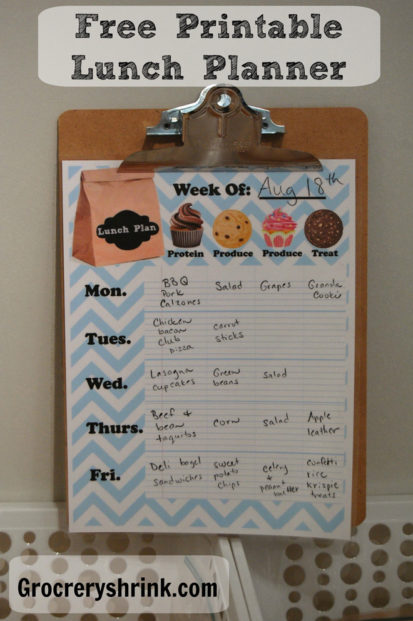 Free Printable
Lunch Planner
Week Of: Aug 18th
Lunch Plan
Protein Produce Produce Treat
Mon.
BBQ
Pork
Calzones
Salad
Grapes
Granola
Cookie
Tues.
Chicken
bacon
club
pizza
carrot
sticks
Wed.
Lasagna
cupcakes
Green
beans
salad
Thurs.
Beef &
bean
taquitos
corn
salad
Apple
leather
Fri.
Deli bagel
sandwiches
sweet
potato
chips
celery
+
peanut butter
confetti
rice
krispie
treats
Grocreryshrink.com